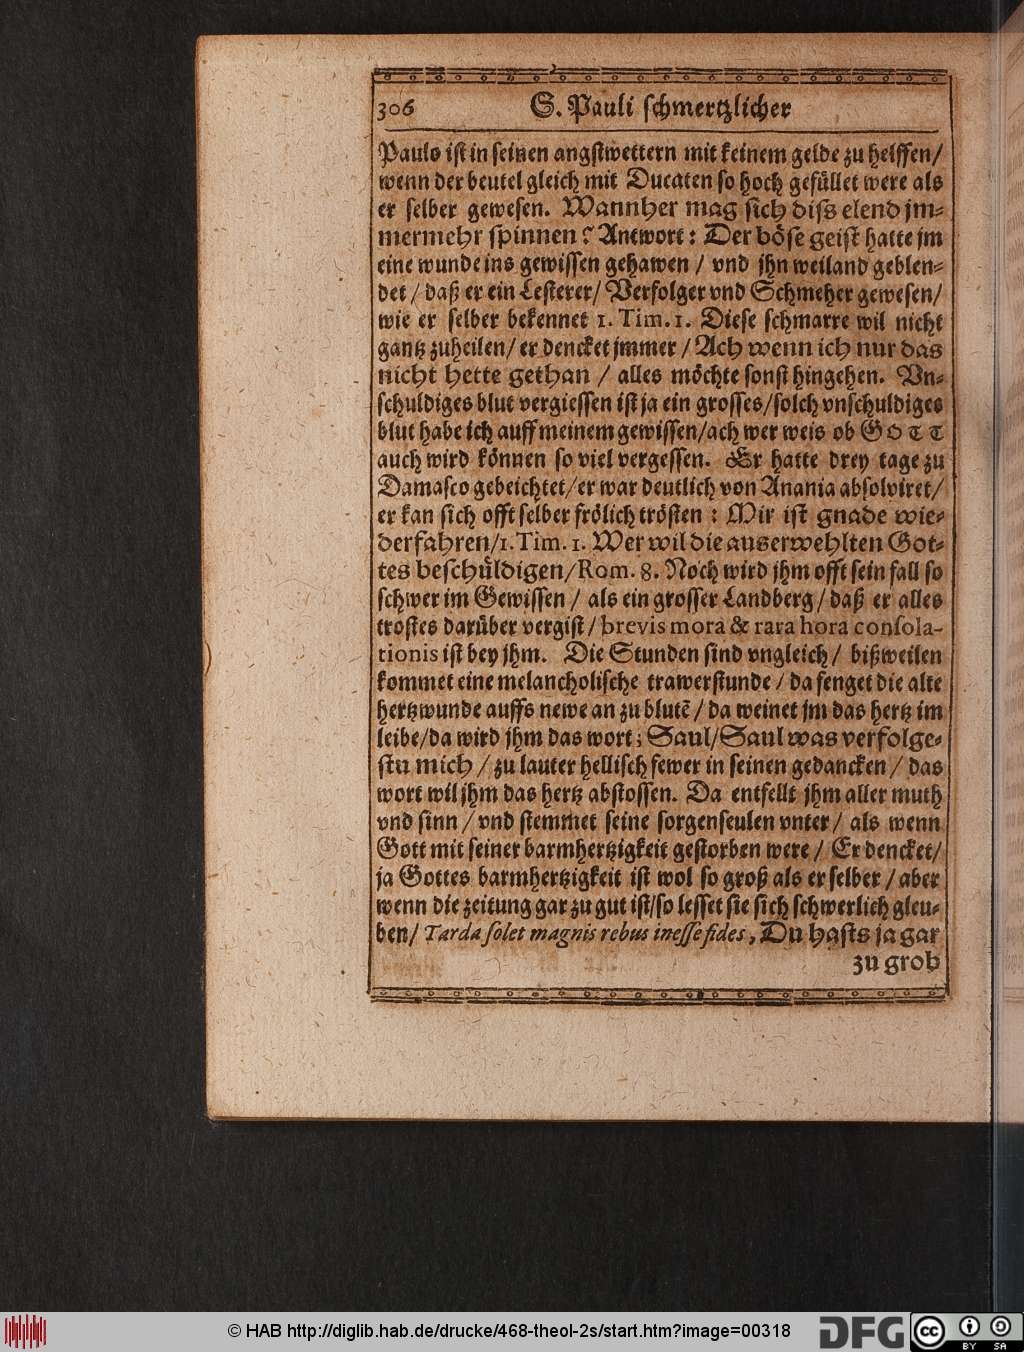 306 S. Pauli schmertzlicher
Paulo ist in seinen angstwettern mit keinem gelde zu helffen/
wenn der beutel gleich mit Ducaten so hoch gefüllet were als
er selber gewesen. Wannher mag sich diß elend jm-
mermehr spinnen? Antwort: Der böse geist hatte jm
eine wunde ins gewissen gehawen / vnd jhn weiland geblen-
det / daß er ein Lesterer/ Verfolger vnd Schmeher gewesen/
wie er selber bekennet 1. Tim. 1. Diese schmarre wil nicht
gantz zuheilen/ er dencket jmmer / Ach wenn ich nur das
nicht hette gethan / alles möchte sonst hingehen. Vn-
schuldiges blut vergiessen ist ja ein grosses/solch vnschuldiges
blut habe ich auff meinem gewissen/ach wer weis ob GOTT
auch wird können so viel vergessen. Er hatte drey tage zu
Damasco gebeichtet/er war deutlich von Anania absolviret/
er kan sich offt selber frölich trösten : Mir ist gnade wie-
derfahren/1. Tim. 1. Wer wil die auserwehlten Got-
tes beschüldigen/Rom. 8. Noch wird jhm offt sein fall so
schwer im Gewissen / als ein grosser Landberg / daß er alles
trostes darüber vergist / brevis mora & rara hora consola-
tionis ist bey jhm. Die Stunden sind vngleich / bißweilen
kommet eine melancholische trawerstunde / da fenget die alte
hertzwunde auffs newe an zu blutẽ / da weinet jm das hertz im
leibe/da wird jhm das wort; Saul/Saul was verfolge-
stu mich / zu lauter hellisch fewer in seinen gedancken / das
wort wil jhm das hertz abstossen. Da entfellt jhm aller muth
vnd sinn / vnd stemmet seine sorgenseulen vnter / als wenn
Gott mit seiner barmhertzigkeit gestorben were / Er dencket/
ja Gottes barmhertzigkeit ist wol so groß als er selber / aber
wenn die zeitung gar zu gut ist/so lesset sie sich schwerlich gleu-
ben/ Tarda solet magnis rebus inesse fides, Du hasts ja gar
zu grob
© HAB http://diglib.hab.de/drucke/468-theol-2s/start.htm?image=00318
DFG
cc BY SA